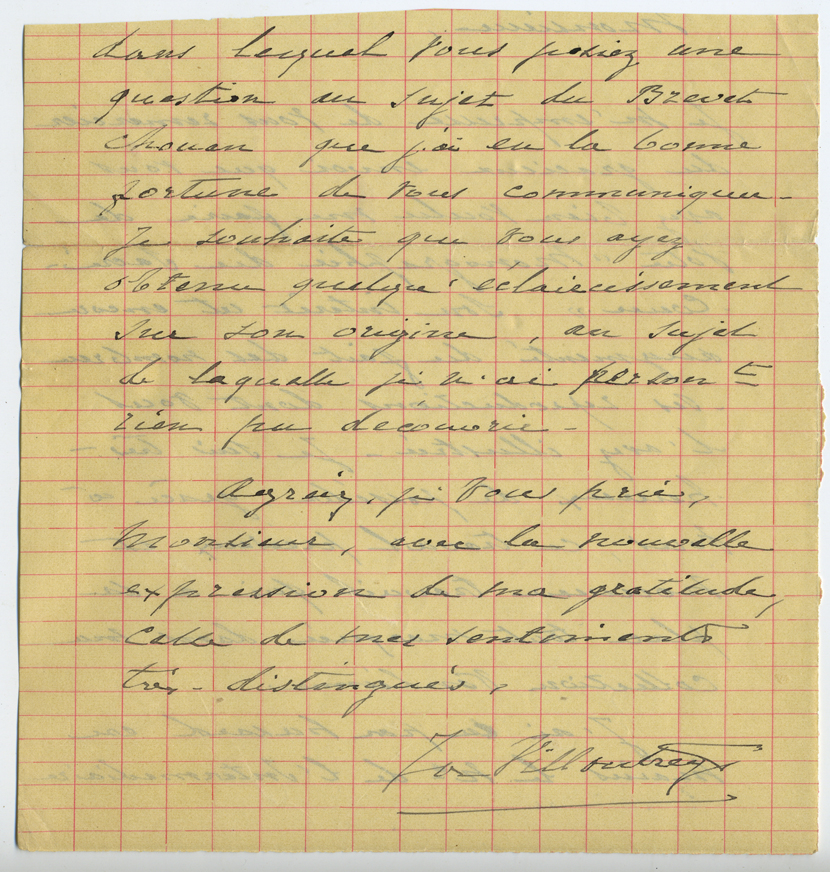 dans lequel vous posiez une
question au sujet du Brevet
Chouan que j'ai eu la bonne
fortune de vous communiquer -
Je souhaite que vous ayez
obtenu quelque éclaircissement
sur son origine, au sujet
de laquelle je n'ai person^t
rien pu découvrir -
Agréez, je vous prie,
Monsieur, avec la nouvelle
expression de ma gratitude,
celle de mes sentiments
très-distingués,
Villoutreys